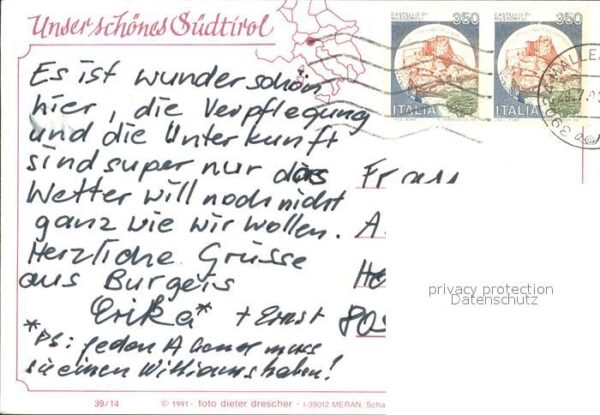 Unser schönes Südtirol
CASTELLO DI MUSSOMELI 350
CASTELLO DI MUSSOMELI 350
ITALIA
ITALIA
39024 MALLES
Es ist wunderschön
hier, die Verpflegung
und die Unterkunft
sind super nur das
Wetter will noch nicht
ganz wie wir wollen.
Herzliche Grüsse
aus Burgeis
Erika* + Ernst
*PS: jeden Abend muss
sie einen Williams haben!
Frau
A.
He
805
privacy protection
Datenschutz
39/14 © 1991 · foto dieter drescher · I-39012 MERAN, Scha